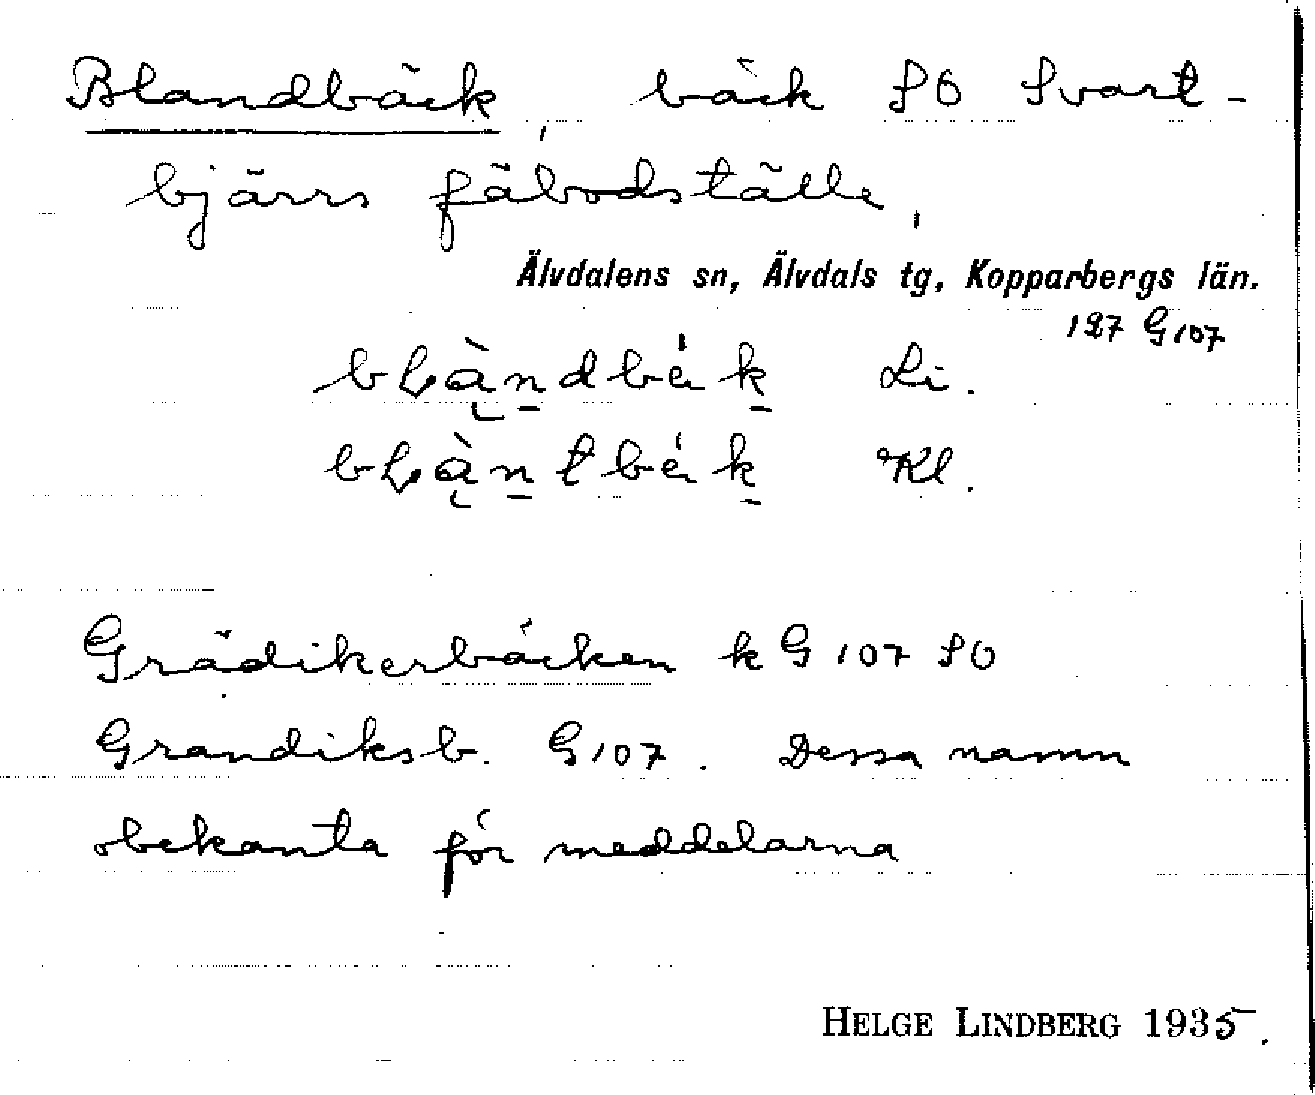 Blandbäck, bäck SO Svart-
bjärrs fäbodställe,
Älvdalens sn, Älvdals tg, Kopparbergs län.
127 G107
Li.
Kl.
Grädikerbäcken k G 107 SO
Grandiksb. G107. Dessa namn
obekanta för meddelarna
HELGE LINDBERG 1935.